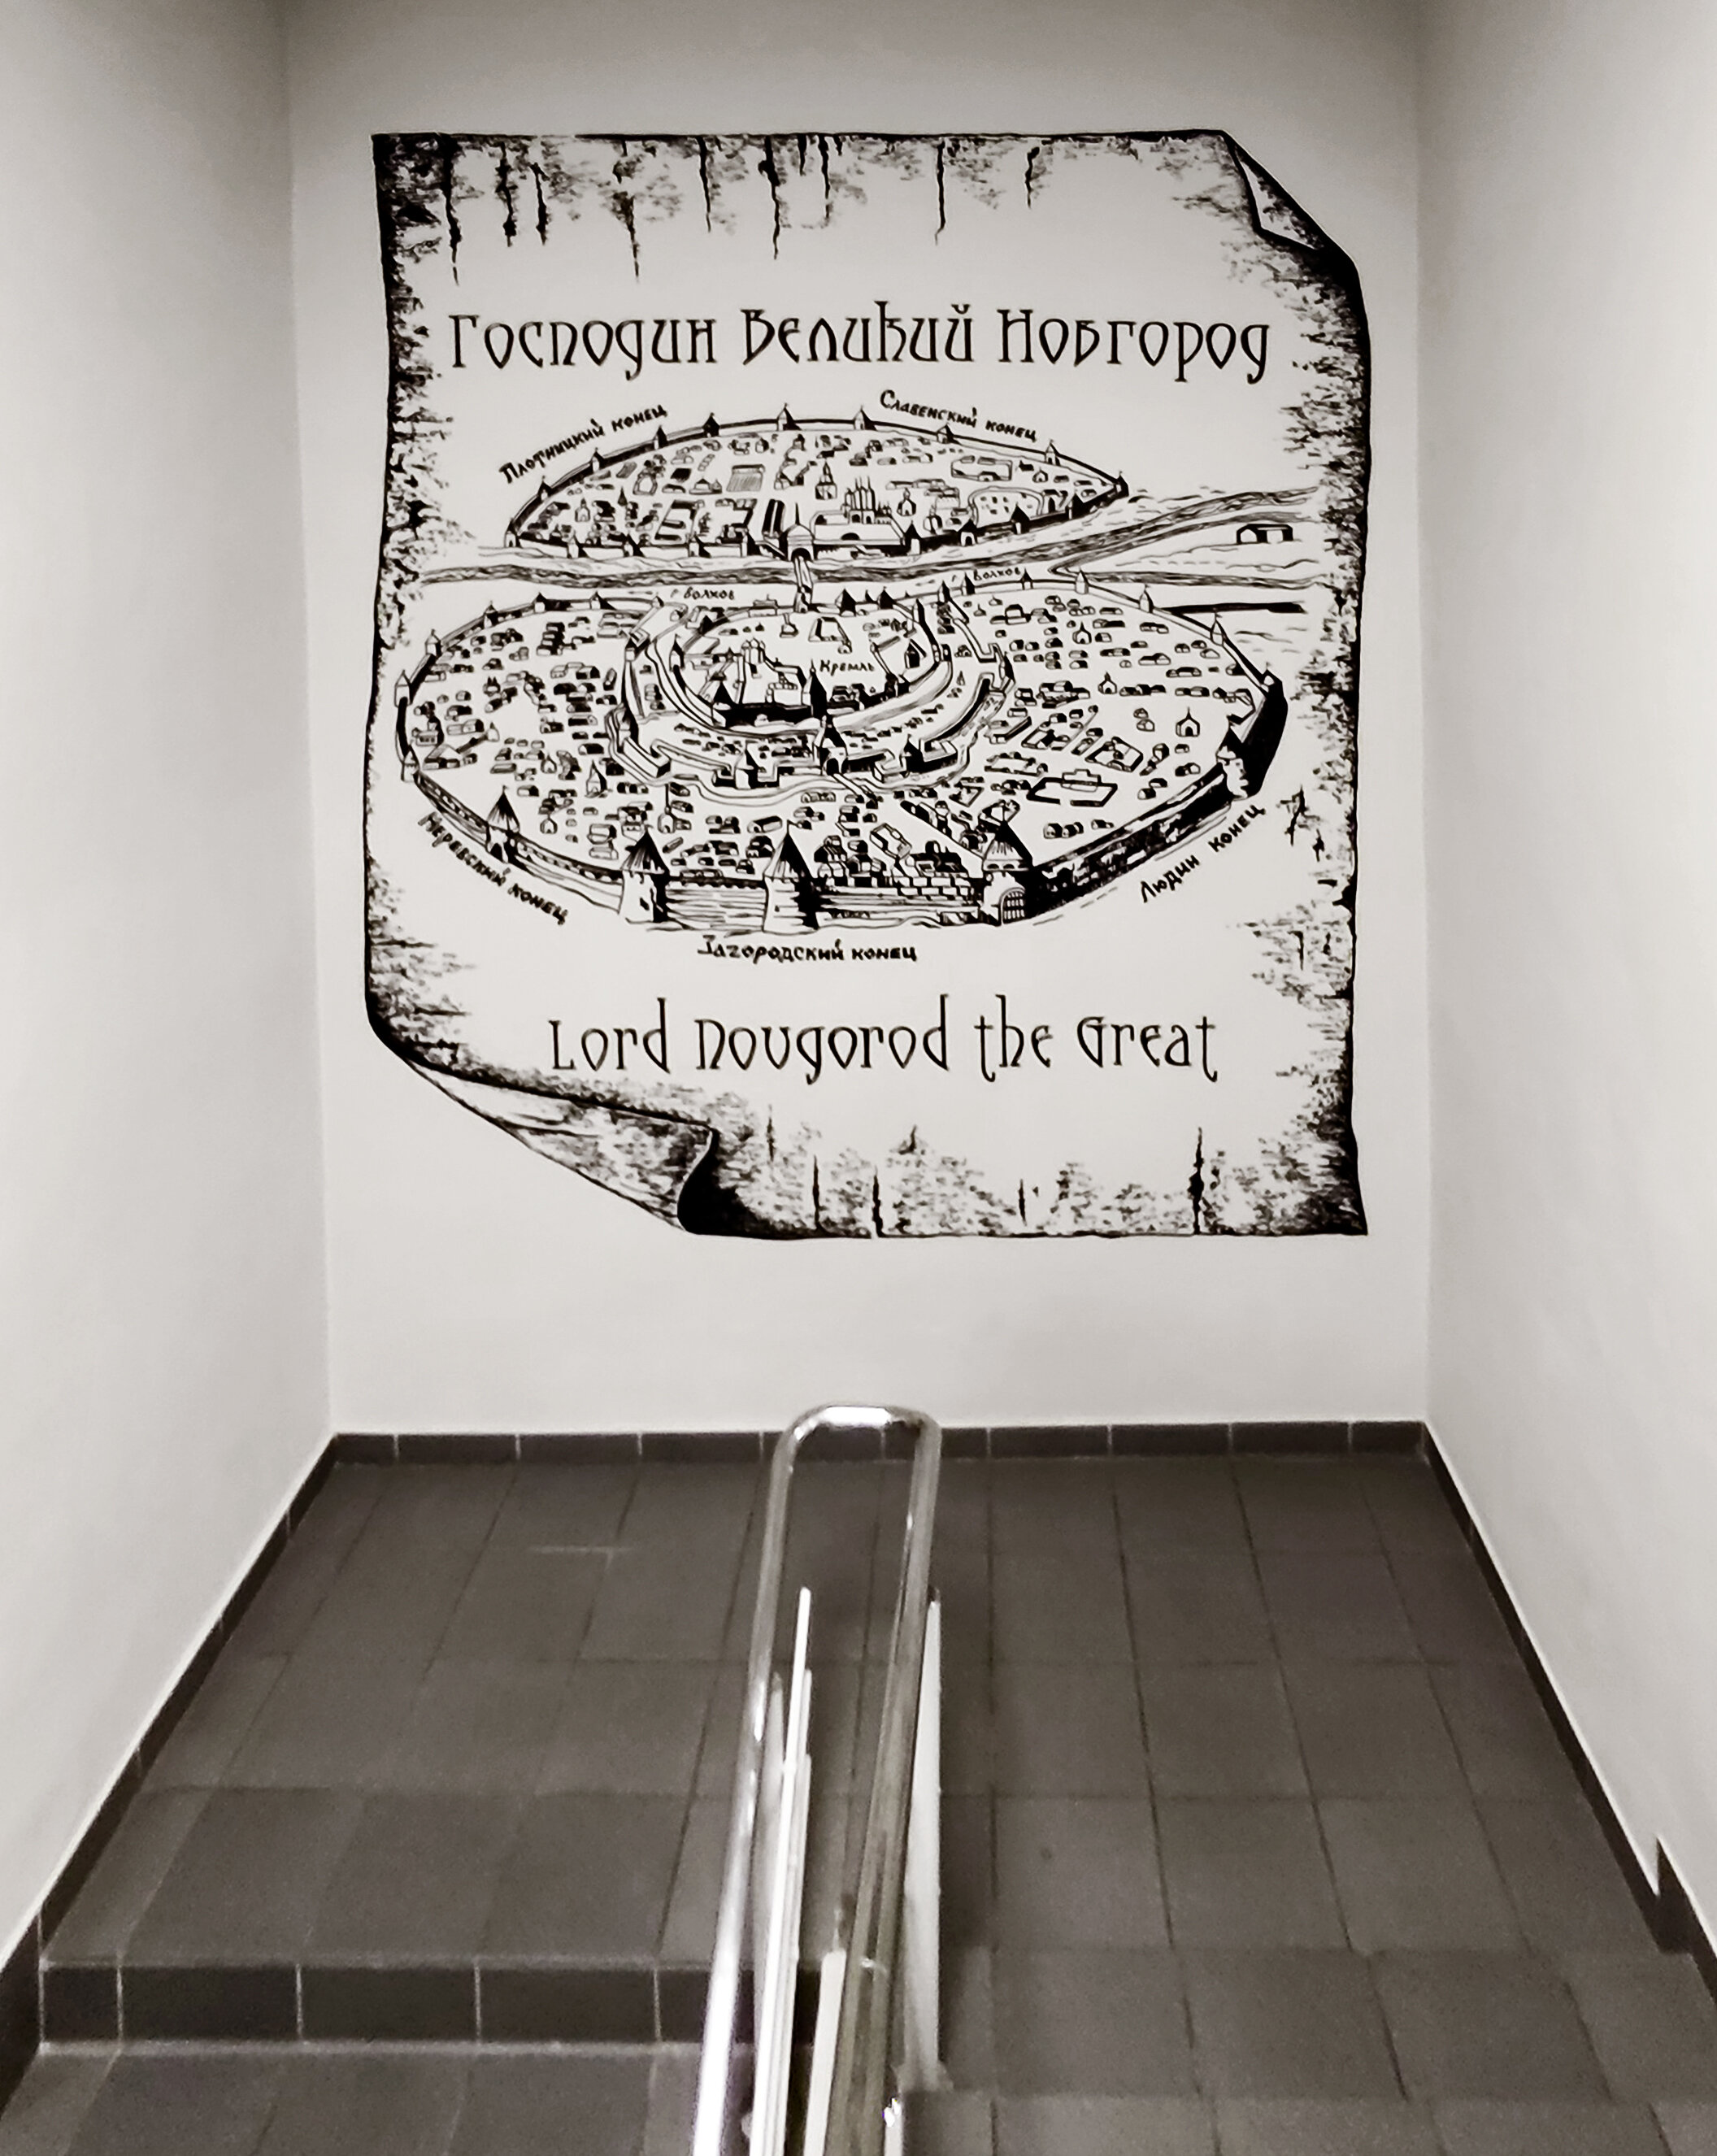 Господин Великий Новгород
Плотницкий конец
Славенский конец
р Волхов
р Волхов
Кремль
Неревский конец
Людин конец
Загородский конец
Lord Novgorod the Great